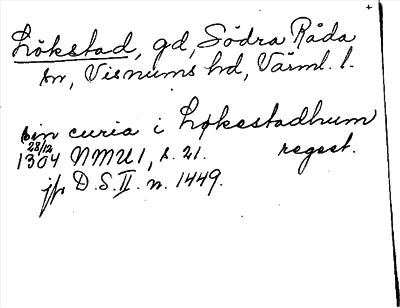 Lökstad, gd, Södra Råda
sn, Visnums hd, Värml. l.
sin curia i Løkestadhum
28/12
1304 NMU 1, s. 21. regest.
jfr D.S. II. n. 1449.